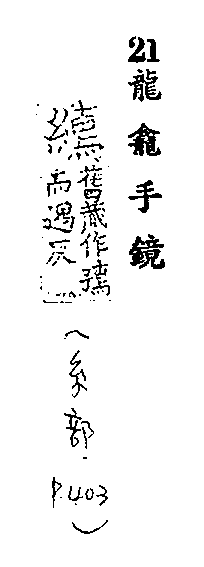 21龍龕手鏡
舊藏作
尚遇反
(糸部 P.403)